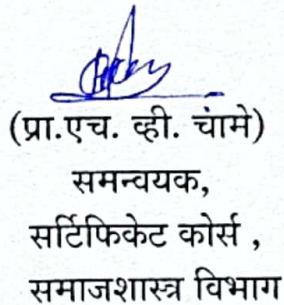 (प्रा.एच. व्ही. चामे)
समन्वयक,
सर्टिफिकेट कोर्स ,
समाजशास्त्र विभाग